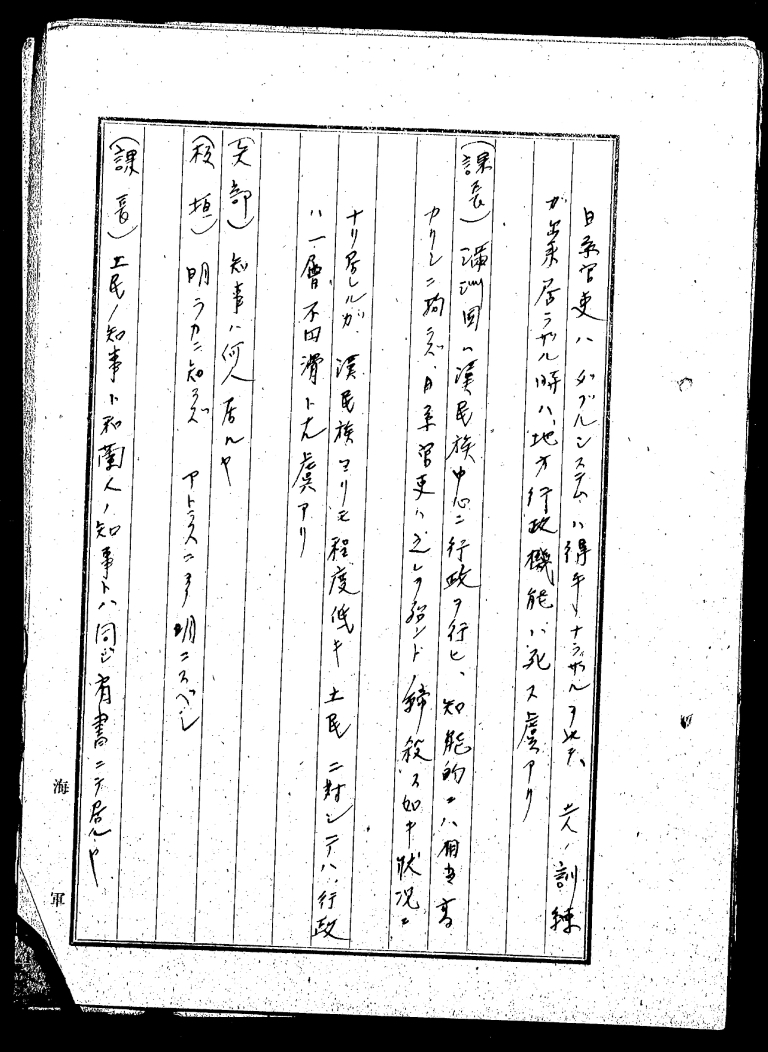 日系官吏ハダブルシステムハ得キナラザルヲ以テ、土人ノ訓練
ガ出来居ラザル時ハ、地方行政機能ハ死ス虞アリ
(課長) 満洲国ハ漢民族中心ニ行政ヲ行ヒ、知能的ニハ相当高
カリシニ拘ラズ、日系官吏ハ之レヲ殆ンド締殺ス如キ状況ニ
ナリ居レルガ、漢民族ヨリモ程度低キ土民ニ対シテハ、行政
ハ一層不円滑トナル虞アリ
(矢部) 知事ハ何人居ルヤ
(板垣) 明ラカニ知ラズ アトラスニヨリ明ニスベシ
(課長) 土民ノ知事ト和蘭人ノ知事トハ同ジ省書ニテ居ルヤ
海軍